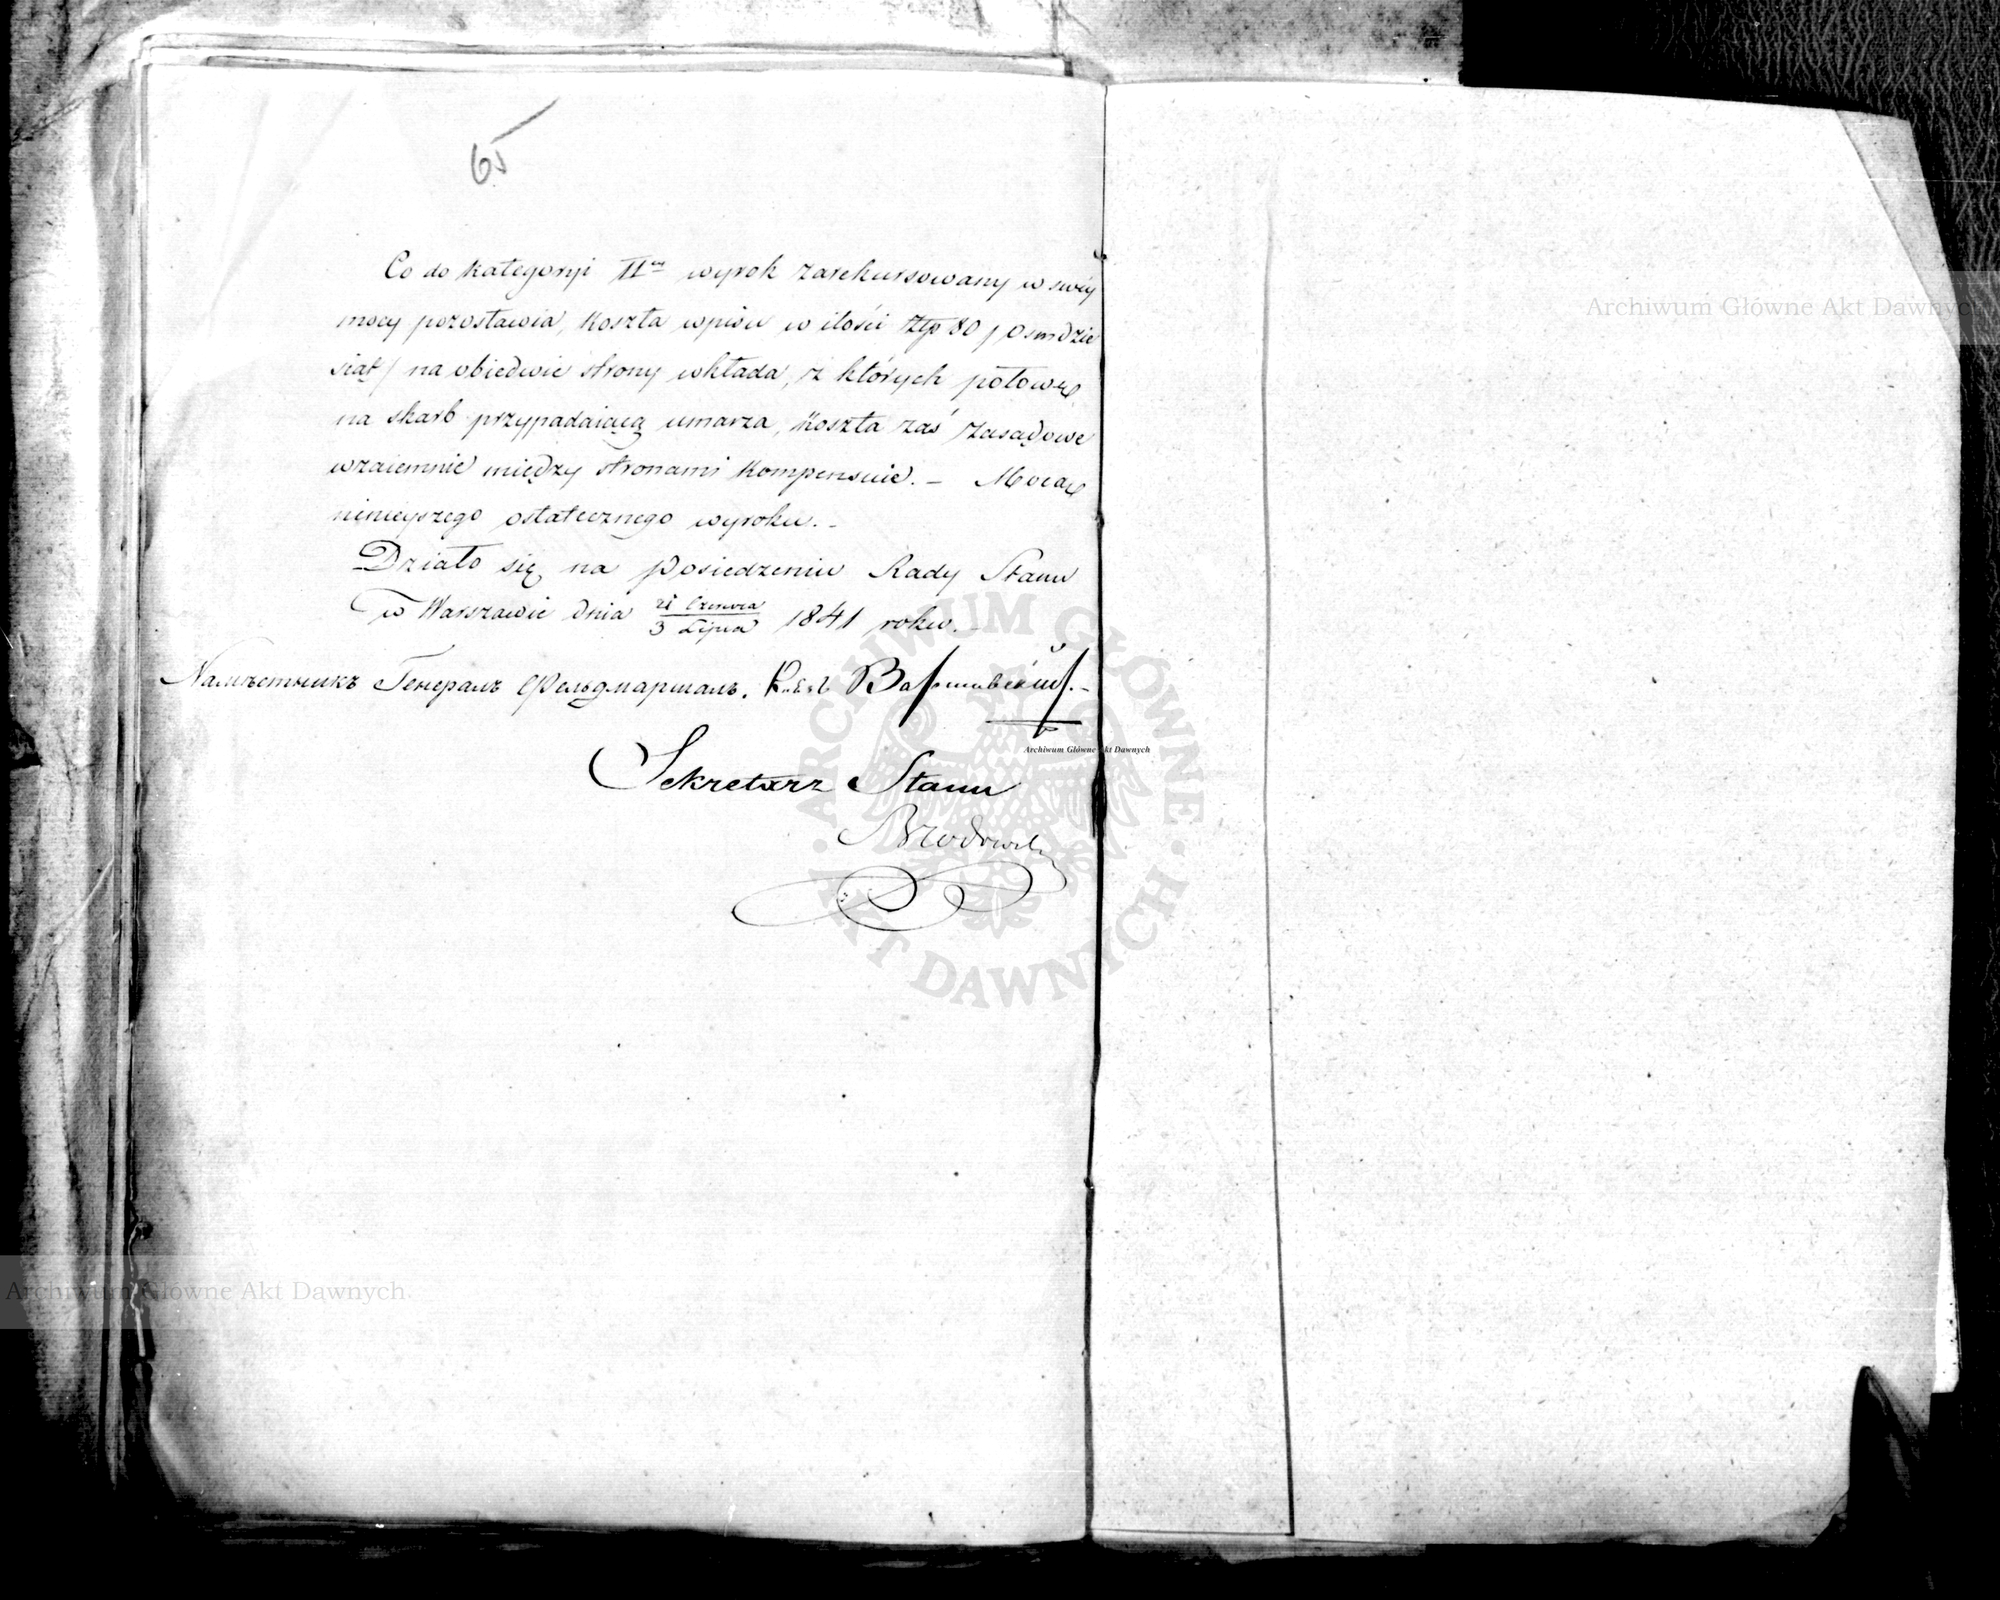 65
Co do kategoryi IIej wyrok zarekursowany w swéy
mocy pozostawia, koszta wpisu w ilości Złp 80 / osmdzie
siąt / na obiedwie strony wkłada, z których połowę
na skarb przypadaiącą umarza, koszta zaś zasądowe
wzaiemnie między stronami kompensuie. – Mocą
ninieyszego ostatecznego wyroku. –
Działo się na posiedzeniu Rady Stanu
w Warszawie dnia 21 Czerwca / 3 Lipca 1841 roku. –
Намѣстникъ Генералъ Фельдмаршалъ. Князь Варшавскій. –
Sekretarz Stanu
Brzozowski
Archiwum Główne Akt Dawnych
Archiwum Główne Akt Dawnych
Archiwum Główne Akt Dawnych
ARCHIWUM GŁÓWNE · AKT DAWNYCH ·